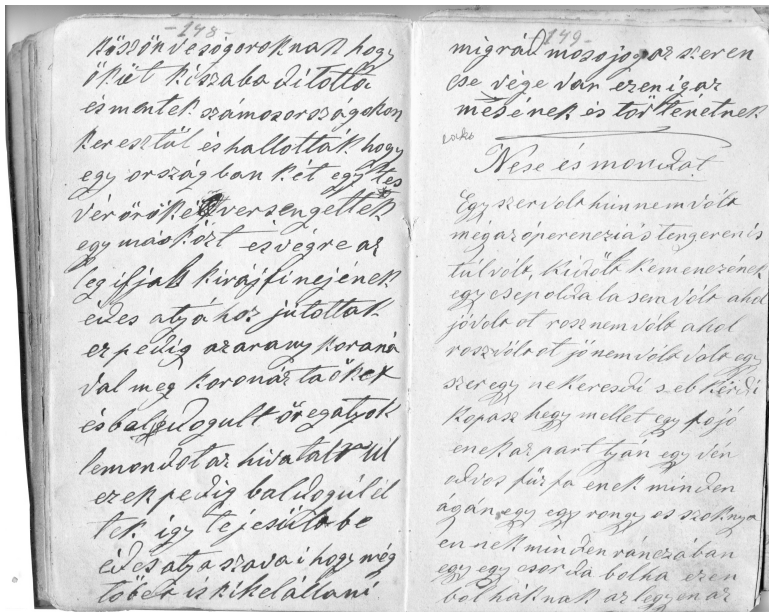 -148-
köszönve sógoroknak hogy
őkiet kiszabadította
és mentek számos országokon
keresztül és hallották hogy
egy országban két egy tes
vér örökét versengettek
egy más közt és végre az
leg ifjabb kirájfi nejének
édes atyához jutottak
ez pedig az arany koroná
val meg koronázta őket
és baldogult öregatyok
lemondot az hivataltól
ezek pedig baldogúl él
tek így tejesült be
édes atya szavai hogy még
töbet is kikelállani
-149-
mígrám mosojog az szeren
cse vége van ezen igaz
mesének és történetnek
Mese és mondat
Egyszer volt hün nem vólt
még az ópereneziás tengeren is
túl vólt, kidőlt kemenczének
egy csep oldala sem vólt ahol
jó volt ot rosz nem vólt ahol
rosz vólt ot jó nem vólt volt egy
szer egy nekeresdi s ebkérdi
kopasz hegy mellet egy fojó
enek az parttyán egy vén
odvos fűzfa enek minden
ágán egy egy rongyos szoknya
en nek minden ránczában
egy egy csorda bolha ezen
bolháknak az legyen az